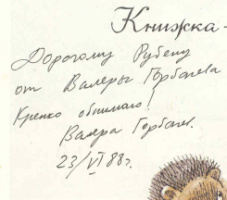 Книжка-
Дорогому Рубену
от Валеры Горбачева
Крепко обнимаю!
Валера Горбачев.
23/VI 88г.